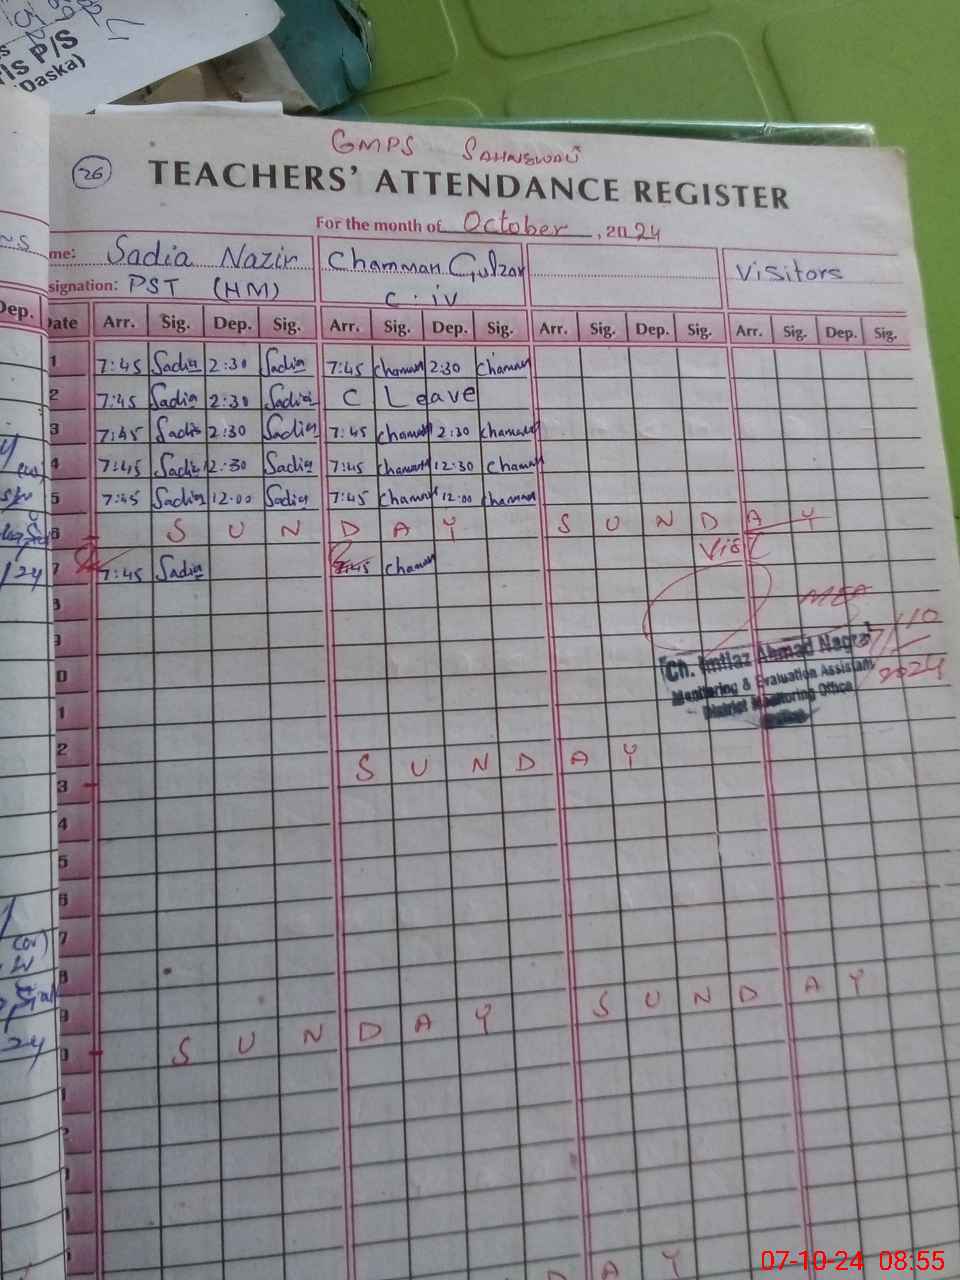 P/S
Daska)
GMPS SAHNSWALI
26
TEACHERS' ATTENDANCE REGISTER
For the month of October, 2024
me: Sadia Nazir Chamman Gulzar Visitors
signation: PST (HM) C.iv
Dep.
Date Arr. Sig. Dep. Sig. Arr. Sig. Dep. Sig. Arr. Sig. Dep. Sig. Arr. Sig. Dep. Sig.
1 7:45 Sadia 2:30 Sadia 7:45 Chaman 2:30 Chaman
2 7:45 Sadia 2:30 Sadia C Leave
3 7:45 Sadia 2:30 Sadia 7:45 Chaman 2:30 Chaman
4 7:45 Sadia 12:30 Sadia 7:45 Chaman 12:30 Chaman
5 7:45 Sadia 12:00 Sadia 7:45 Chaman 12:00 Chaman
6 S U N D A Y S U N D A Y
Visit
7 7:45 Sadia 7:45 Chaman
8
MEA
9
7/10
2024
Ch. Imtiaz Ahmad Nagra
Monitoring & Evaluation Assistant
District Monitoring Office
0
1
2
S U N D A Y
3
4
5
6
7
8
S U N D A Y
9
S U N D A Y
D A Y
24
24
07-10-24 08:55